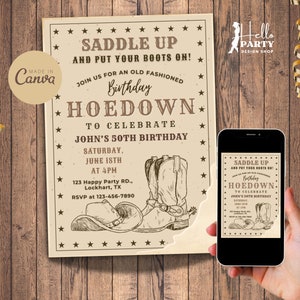 Hello
PARTY
DESIGN SHOP
MADE IN
Canva
SADDLE UP
AND PUT YOUR BOOTS ON!
JOIN US FOR AN OLD FASHIONED
Birthday
HOEDOWN
TO CELEBRATE
JOHN'S 50TH BIRTHDAY
SATURDAY,
JUNE 18TH
AT 4PM
123 Happy Party RD.,
Lockhart, TX
RSVP at 123-456-7890
SADDLE UP
AND PUT YOUR BOOTS ON!
JOIN US FOR AN OLD FASHIONED
Birthday
HOEDOWN
TO CELEBRATE
JOHN'S 50TH BIRTHDAY
SATURDAY,
JUNE 18TH
AT 4PM